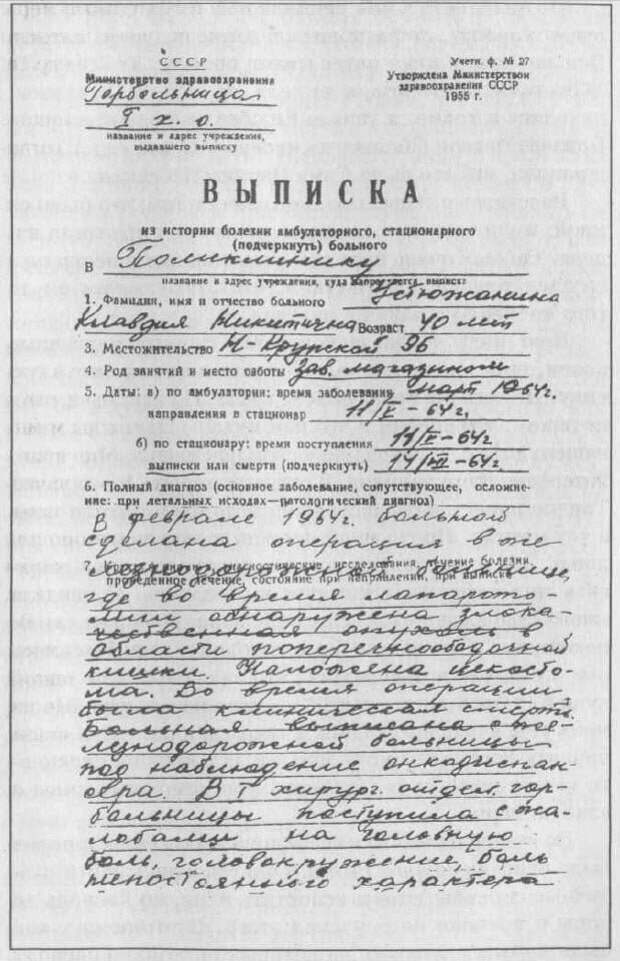 СССР
Министерство здравоохранения
Горбольница
I х. о.
название и адрес учреждения,
выдавшего выписку
Учетн. ф. № 27
Утверждена Министерством
здравоохранения СССР
1955 г.
ВЫПИСКА
из истории болезни амбулаторного, стационарного
(подчеркнуть) больного
В Поликлинику
название и адрес учреждения, куда направляется выписка
1. Фамилия, имя и отчество больного Устюжанина
Клавдия Никитична Возраст 40 лет
3. Местожительство Н-Крупской 96
4. Род занятий и место работы Зав. магазином
5. Даты: а) по амбулатории: время заболевания март 1964г.
направления в стационар 11/V-64г,
б) по стационару: время поступления 11/V-64г
выписки или смерти (подчеркнуть) 14/VII-64г
6. Полный диагноз (основное заболевание, сопутствующее, осложне-
ние: при летальных исходах—патологический диагноз)
В феврале 1964г. больной
сделана операция в же-
лезнодорожной больнице,
7. Краткий анамнез, диагностические исследования, течение болезни,
проведенное лечение, состояние при направлении, при выписке
где во время лапарото-
мии обнаружена злока-
чественная опухоль в
области поперечноободочной
кишки. Наложена цекосто-
ма. Во время операции
была клиническая смерть.
Больная выписана с жел-
лезнодорожной больницы
под наблюдение онкодиспан-
сера. В I хирург. отдел. гор-
больницы поступила с жа-
лобами на головную
боль, головокружение, боль
непостоянного характера